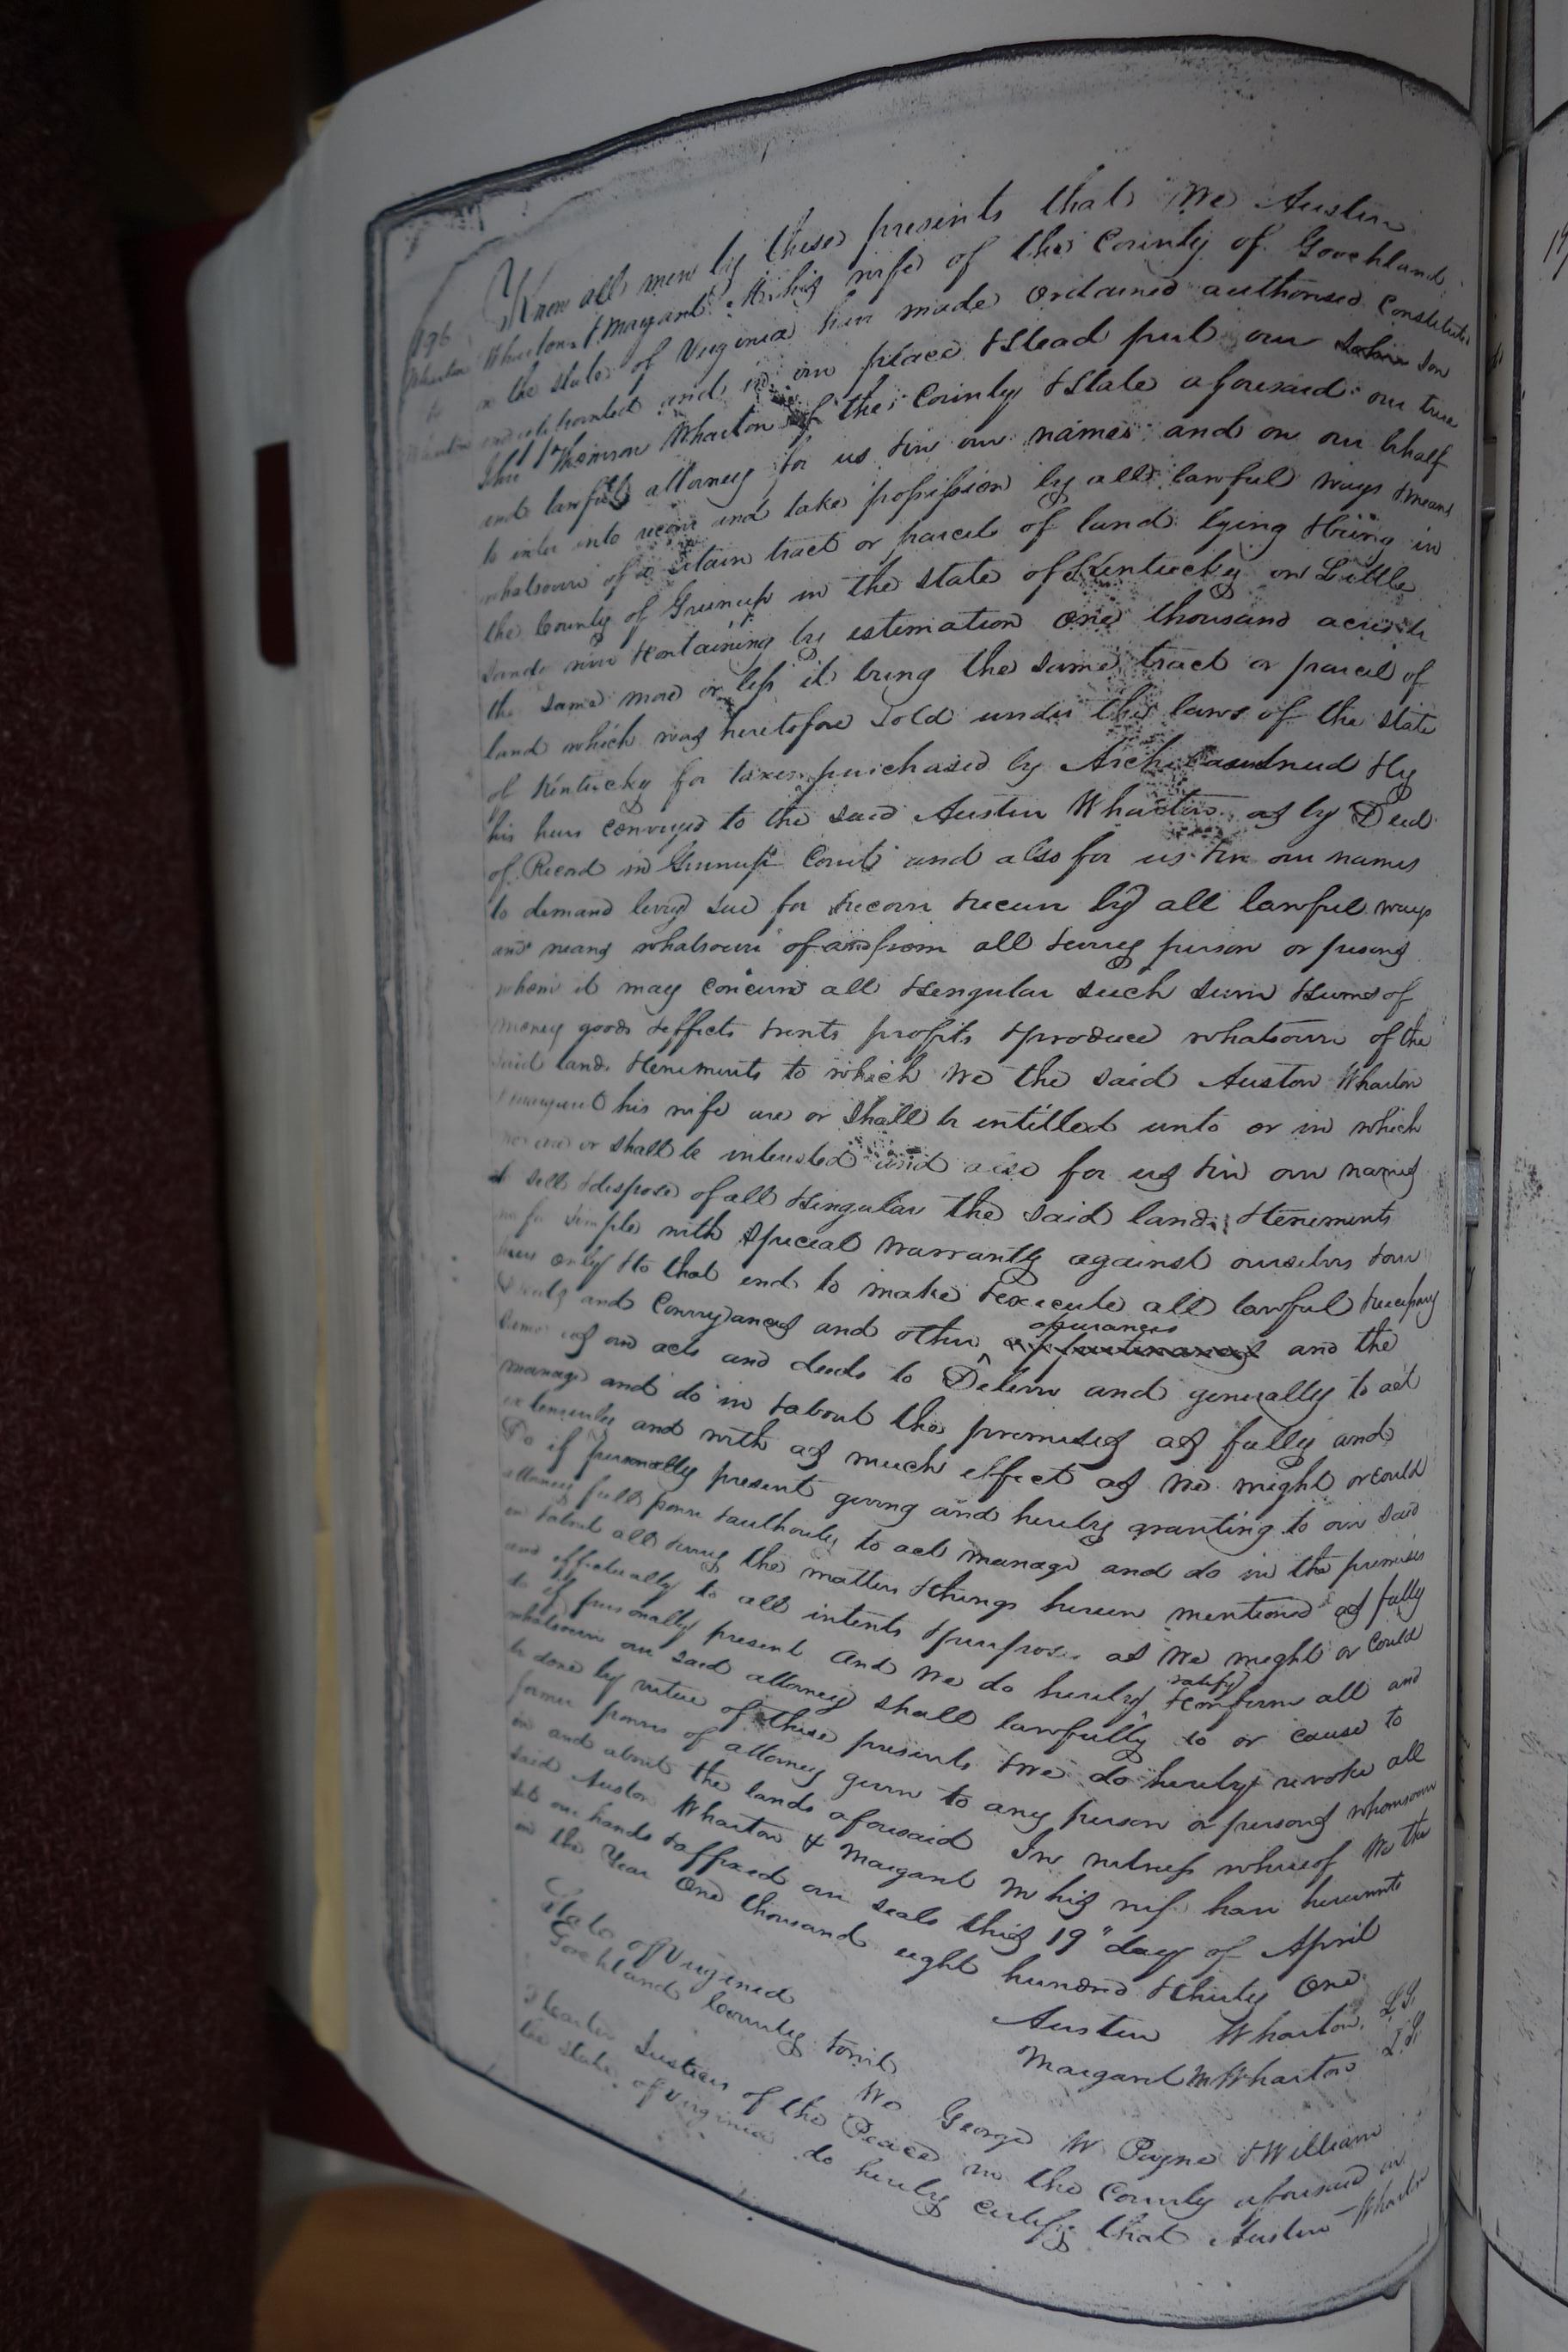 Know all men by these presents that We Austin
196
Wharton & Margaret M his wife of the County of Goochland
Wharton
in the State of Virginia have made ordained authorised Constituted
to
and in our place & Stead put our son
Wharton
John Thomson Wharton of the County & State aforesaid our true
and lawful attorney for us & in our names and on our behalf
to enter into recover and take possession by all lawful ways & means
whatsoever of a certain tract or parcel of land lying & being in
the County of Greenup in the State of Kentucky on Little
Sandy river & containing by estimation one thousand acres be
the same more or less it being the same tract or parcel of
land which was heretofore Sold under the laws of the State
of Kentucky for taxes purchased by & by
his heirs conveyed to the said Austin Wharton as by Deed
of Record in Greenup Court and also for us & in our names
to demand levy sue for & recover & receive by all lawful ways
and means whatsoever of and from all & every person or persons
whom it may concern all & singular such sum & sums of
money goods & effects & rents profits & produce whatsoever of the
said land & tenements to which we the said Auston Wharton
& Margaret his wife are or shall be intitled unto or in which
we are or shall be interested and also for us & in our names
to sell & dispose of all & singular the said land & tenements
in fee simple with special warranty against ourselves & our
heirs only & to that end to make & execute all lawful & necessary
Deeds and Conveyances and other and the
assurances
same as our acts and deeds to Deliver and generally to act
manage and do in & about the premises as fully and
extensively and with as much effect as we might or could
Do if personally present giving and hereby granting to our said
attorney full power & authority to act manage and do in the premises
or & about all & every the matters & things herein mentioned as fully
and effectually to all intents & purposes as we might or could
do if personally present And we do hereby & confirm all and
ratify
whatsoever our said attorney shall lawfully do or cause to
be done by virtue of these presents & We do hereby revoke all
former powers of attorney given to any person or persons whomsoever
in and about the lands aforesaid In witness whereof We the
said Auston Wharton & Margaret M his wife have hereunto
set our hands & affixed our seals this 19" day of April
in the Year One thousand eight hundred & thirty One
Austin Wharton L.S.
Margaret M Wharton L.S.
State of Virginia
Goochland County towit
We George W Payne & William
Justices of the Peace in the County aforesaid in
the State of Virginia do hereby certify that Austin Wharton